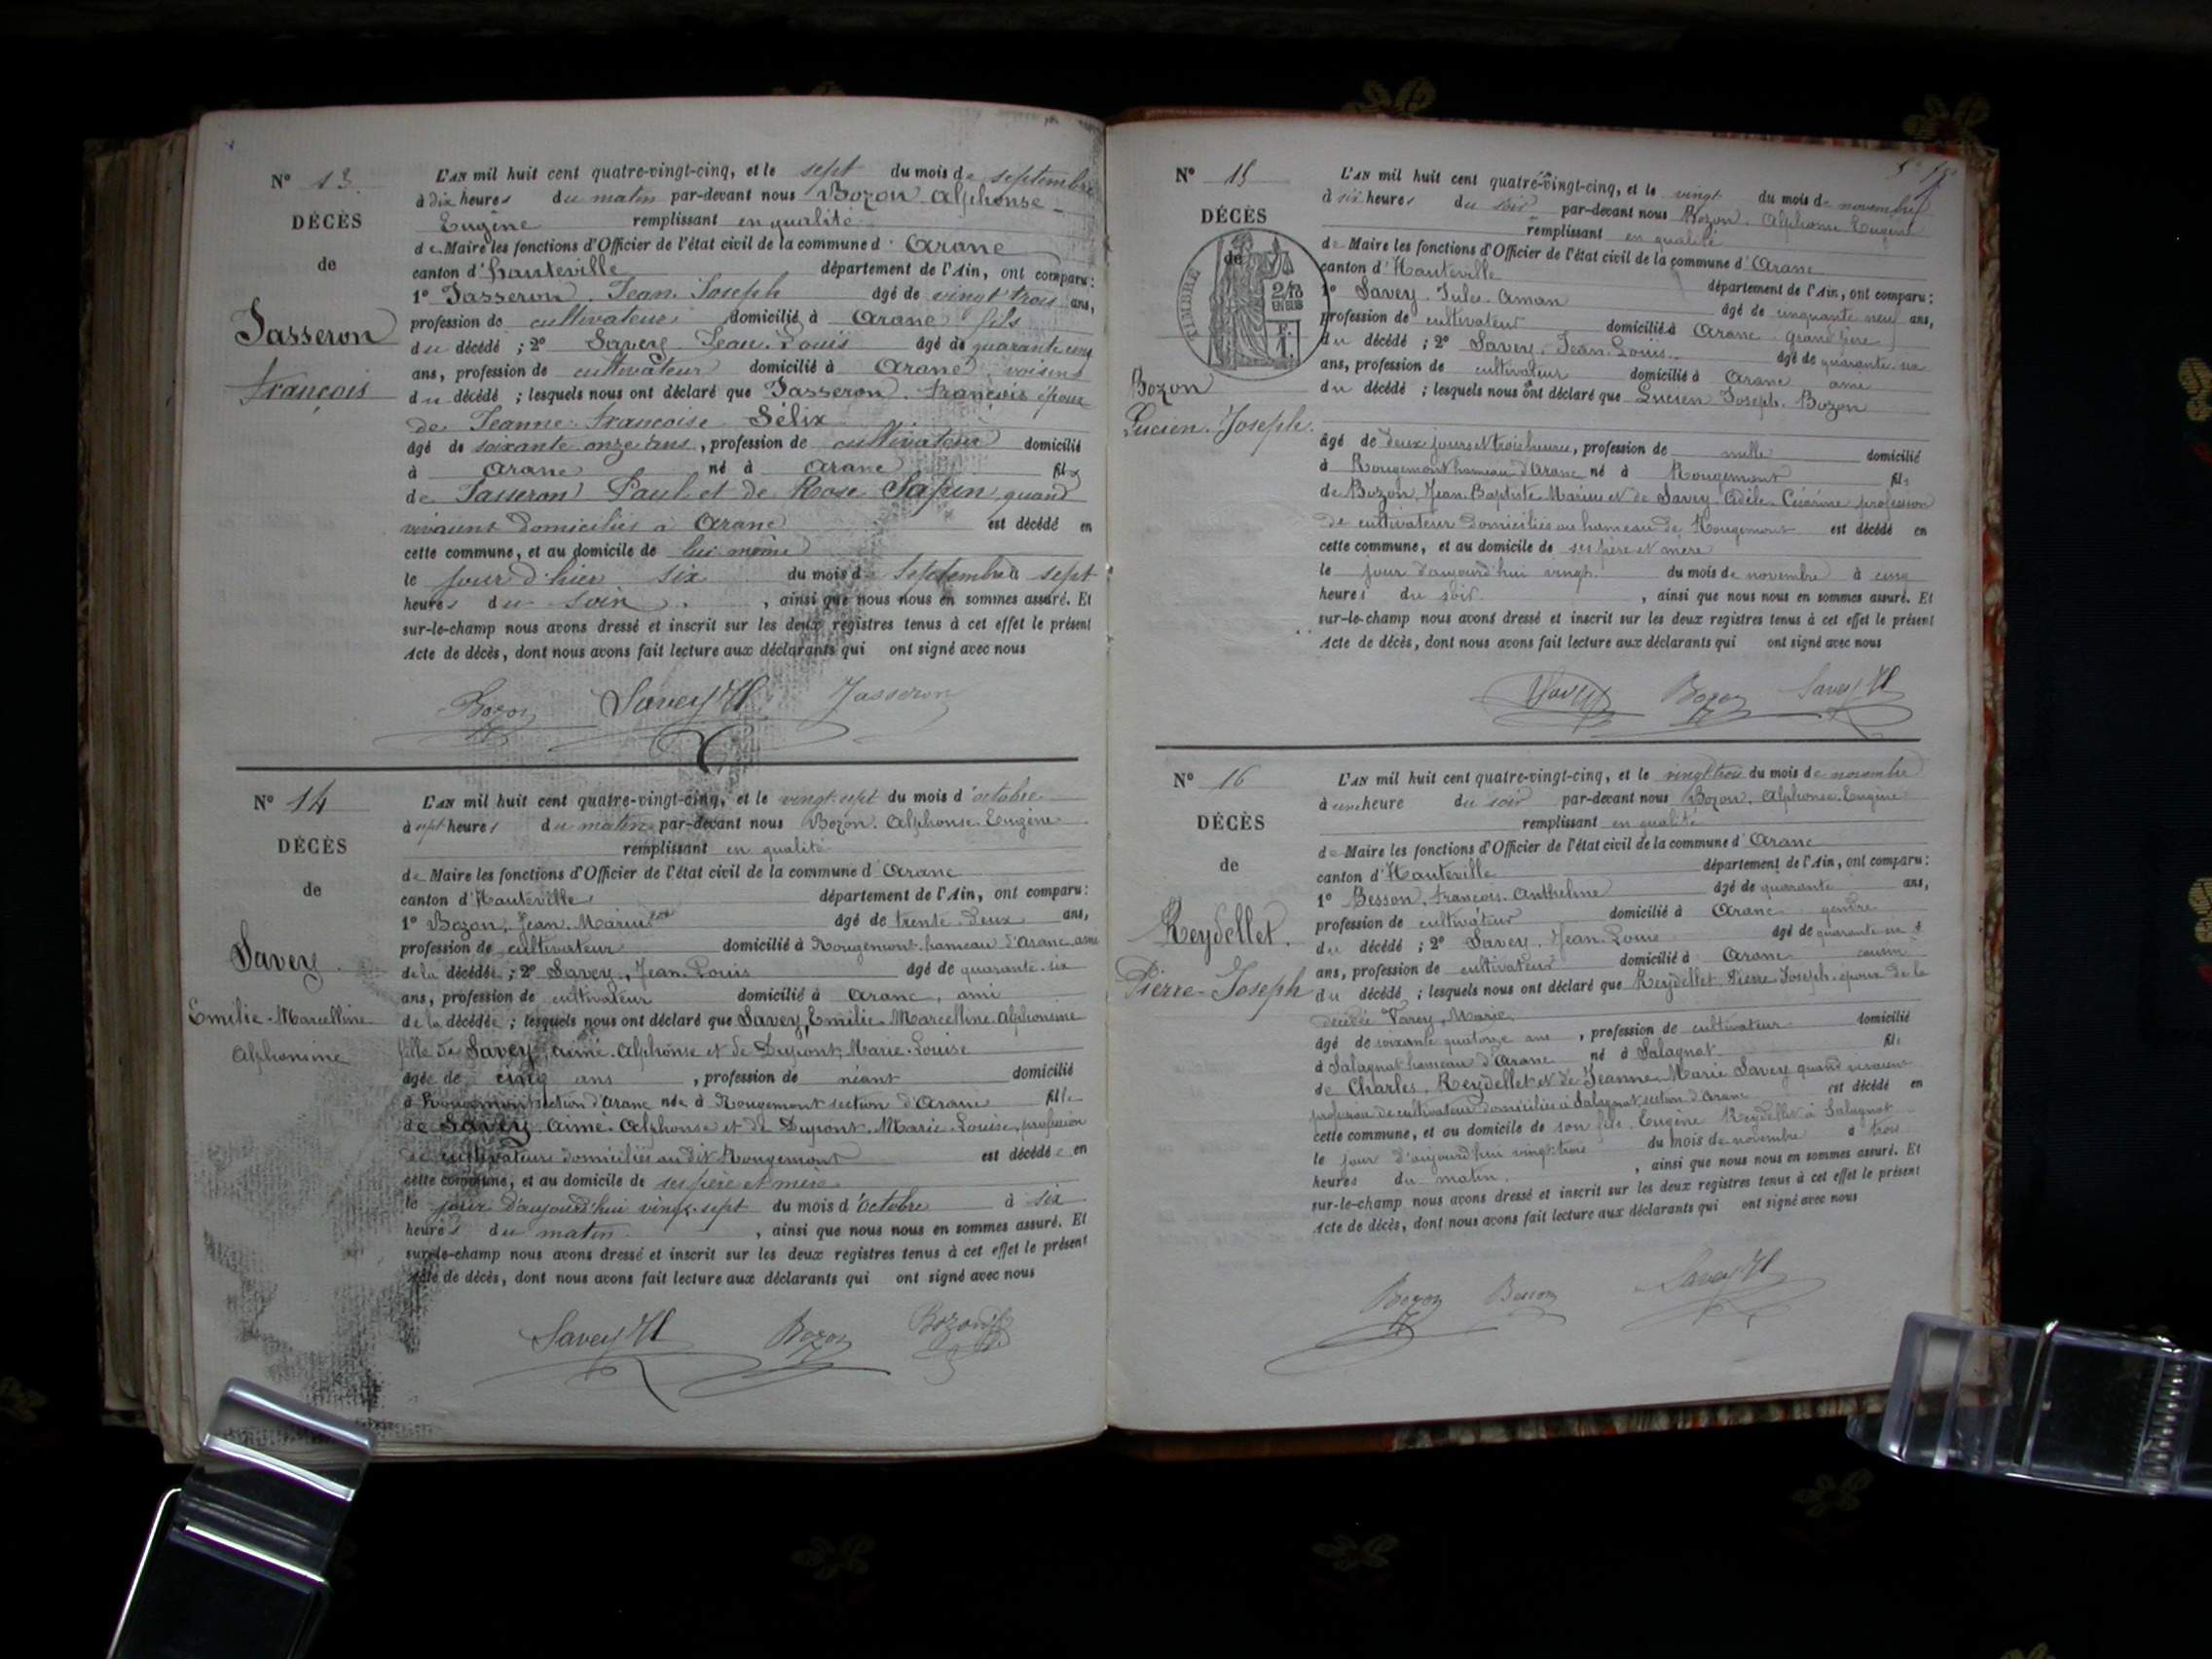 N° 13.
DÉCÈS
de
Jasseron
François
L'AN mil huit cent quatre-vingt-cinq, et le sept du mois de septembre
à dix heures du matin par-devant nous Bozon Alphonse
Eugène remplissant en qualité
de Maire les fonctions d'Officier de l'état civil de la commune d'Aranc
canton d'hauteville département de l'Ain, ont comparu:
1° Jasseron, Jean Joseph âgé de vingt trois ans,
profession de cultivateur domicilié à Aranc fils
du décédé ; 2° Savey Jean Louis âgé de quarante cinq
ans, profession de cultivateur domicilié à Aranc voisin
du décédé ; lesquels nous ont déclaré que Jasseron, François époux
de Jeanne Françoise Sélix
âgé de soixante onze ans, profession de cultivateur domicilié
à Aranc né à Aranc fils
de Jasseron Paul et de Rose Sapin quand
vivaient domiciliés à Aranc est décédé en
cette commune, et au domicile de lui même
le jour d'hier six du mois de septembre à sept
heures du soir, ainsi que nous nous en sommes assuré. Et
sur-le-champ nous avons dressé et inscrit sur les deux registres tenus à cet effet le présent
Acte de décès, dont nous avons fait lecture aux déclarants qui ont signé avec nous
Bozon Savey Jasseron
N° 14
DÉCÈS
de
Savey
Emilie-Marcelline
Alphonsine
L'AN mil huit cent quatre-vingt-cinq, et le vingt-sept du mois d'octobre
à sept heures du matin par-devant nous Bozon, Alphonse Eugène
remplissant en qualité
de Maire les fonctions d'Officier de l'état civil de la commune d'Aranc
canton d'Hauteville département de l'Ain, ont comparu:
1° Bozon, Jean Marius âgé de trente deux ans,
profession de cultivateur domicilié à Rougemont hameau d'Aranc ami
de la décédée ; 2° Savey, Jean Louis âgé de quarante six
ans, profession de cultivateur domicilié à Aranc, ami
de la décédée ; lesquels nous ont déclaré que Savey, Emilie Marcelline Alphonsine
fille de Savey, aimé Alphonse et de Dupont, Marie Louise
âgée de cinq ans, profession de néant domicilié
à Rougemont section d'Aranc née à Rougemont section d'Aranc fille
de Savey aimé Alphonse et de Dupont, Marie Louise, profession
de cultivateurs domiciliés au dit Rougemont est décédée en
cette commune, et au domicile de ses père et mère
le jour d'aujourd'hui vingt-sept du mois d'octobre à six
heures du matin, ainsi que nous nous en sommes assuré. Et
sur-le-champ nous avons dressé et inscrit sur les deux registres tenus à cet effet le présent
Acte de décès, dont nous avons fait lecture aux déclarants qui ont signé avec nous
Savey Bozon Bozon
N° 15
DÉCÈS
de
TIMBRE
Bozon
Lucien Joseph.
L'AN mil huit cent quatre-vingt-cinq, et le vingt du mois de novembre
à six heures du soir par-devant nous Bozon, Alphonse Eugène
remplissant en qualité
de Maire les fonctions d'Officier de l'état civil de la commune d'Aranc
canton d'Hauteville département de l'Ain, ont comparu:
1° Savey, Jules Aman âgé de cinquante neuf ans,
profession de cultivateur domicilié à Aranc grand père
du décédé ; 2° Savey, Jean Louis âgé de quarante six
ans, profession de cultivateur domicilié à Aranc ami
du décédé ; lesquels nous ont déclaré que Lucien Joseph Bozon
âgé de deux jours et trois heures, profession de nulle domicilié
à Rougemont hameau d'Aranc né à Rougemont fils
de Bozon, Jean Baptiste Marius et de Savey Adèle profession
de cultivateur domiciliés au hameau de Rougemont est décédé en
cette commune, et au domicile de ses père et mère
le jour d'aujourd'hui vingt du mois de novembre à cinq
heures du soir, ainsi que nous nous en sommes assuré. Et
sur-le-champ nous avons dressé et inscrit sur les deux registres tenus à cet effet le présent
Acte de décès, dont nous avons fait lecture aux déclarants qui ont signé avec nous
Savey Bozon Savey
N° 16
DÉCÈS
de
Reydellet.
Pierre-Joseph
L'AN mil huit cent quatre-vingt-cinq, et le vingt trois du mois de novembre
à une heure du soir par-devant nous Bozon, Alphonse Eugène
remplissant en qualité
de Maire les fonctions d'Officier de l'état civil de la commune d'Aranc
canton d'Hauteville département de l'Ain, ont comparu:
1° Besson, François Anthelme âgé de quarante ans,
profession de cultivateur domicilié à Aranc gendre
du décédé ; 2° Savey, Jean Louis âgé de quarante six
ans, profession de cultivateur domicilié à Aranc cousin
du décédé ; lesquels nous ont déclaré que Reydellet Pierre Joseph époux de la
décédée Varey, Marie
âgé de soixante quatorze ans, profession de cultivateur domicilié
à Salagnat hameau d'Aranc né à Salagnat fils
de Charles Reydellet et de Jeanne Marie Savey quand vivaient
profession de cultivateur domiciliés à Salagnat section d'Aranc est décédé en
cette commune, et au domicile de son fils Eugène Reydellet à Salagnat
le jour d'aujourd'hui vingt trois du mois de novembre à trois
heures du matin, ainsi que nous nous en sommes assuré. Et
sur-le-champ nous avons dressé et inscrit sur les deux registres tenus à cet effet le présent
Acte de décès, dont nous avons fait lecture aux déclarants qui ont signé avec nous
Bozon Besson Savey